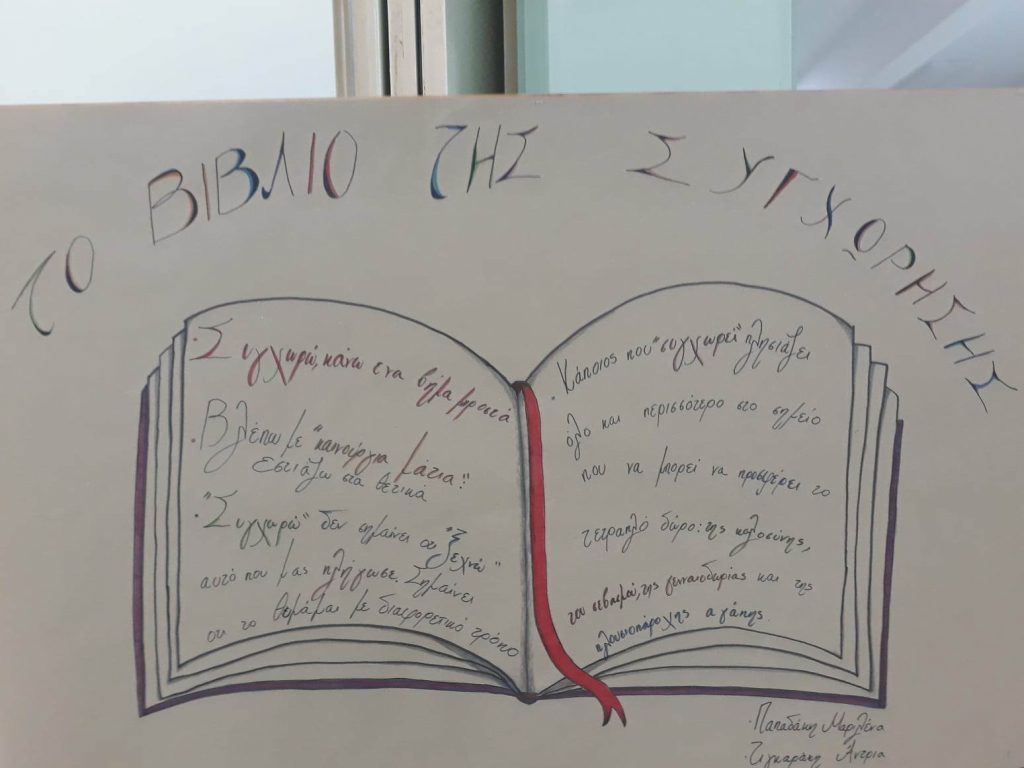 ΤΟ ΒΙΒΛΙΟ ΤΗΣ ΣΥΓΧΩΡΗΣΗΣ
· Συγχωρώ, κάνω ενα βήμα μπροστά
· Βλέπω με "καινούργια μάτια".
Εστιάζω στα θετικά
· "Συγχωρώ" δεν σημαίνει οτι "ξεχνώ"
αυτό που μας πλήγωσε. Σημαίνει
οτι το θυμάμαι με διαφορετικό τρόπο
· Κάποιος που "συγχωρεί" πλησιάζει
όλο και περισσότερο στο σημείο
που να μπορεί να προσφέρει το
τετραπλό δώρο: της καλοσύνης,
του σεβασμού, της γενναιοδωρίας και της
πλουσιοπάροχης αγάπης.
· Παπαδάκη Μαριλένα
· Τιγκαράκη Αντρια